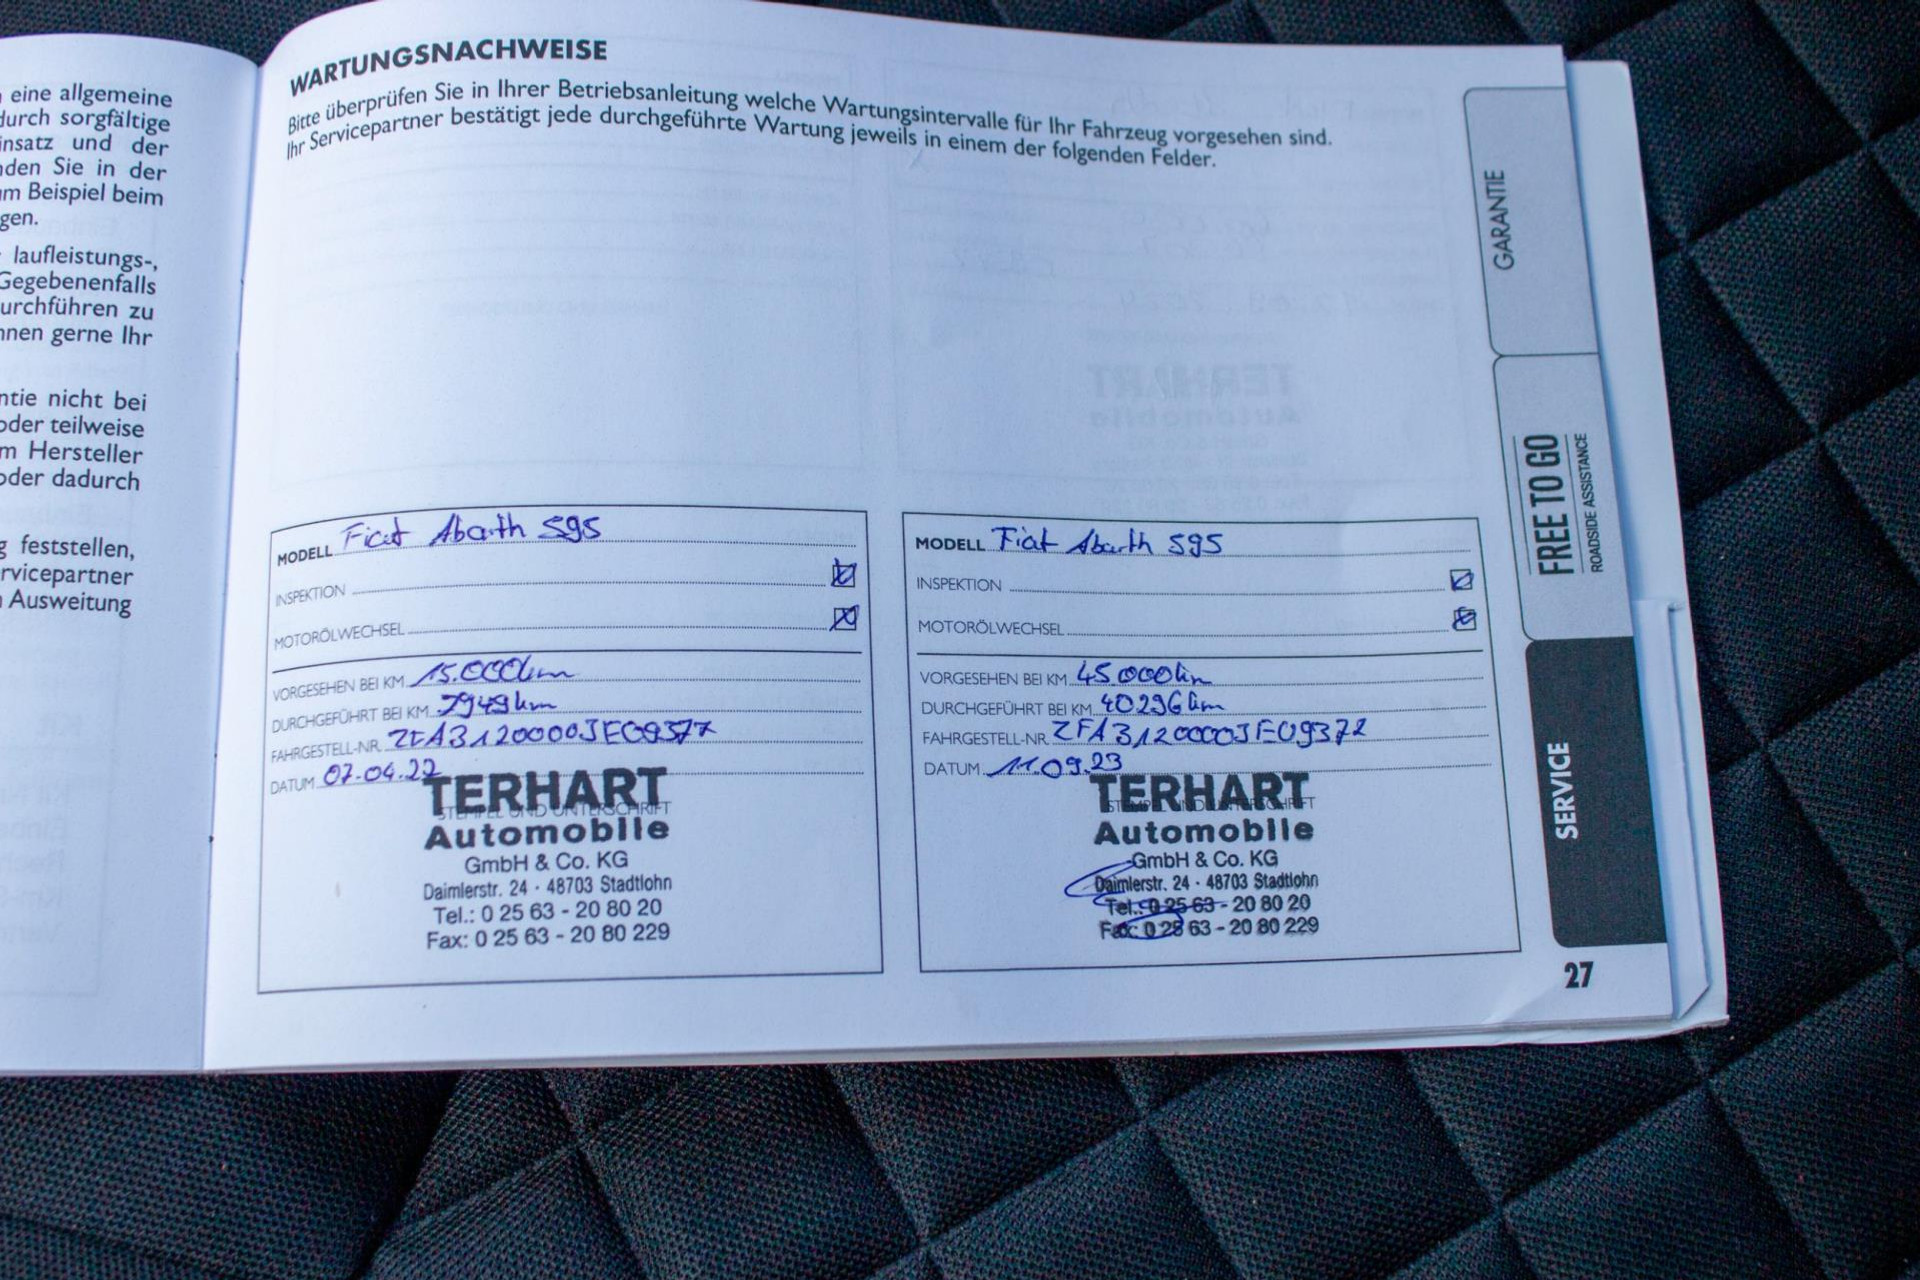 eine allgemeine
durch sorgfältige
insatz und der
nden Sie in der
um Beispiel beim
gen.
laufleistungs-,
Gegebenenfalls
urchführen zu
hnen gerne Ihr
ntie nicht bei
oder teilweise
m Hersteller
oder dadurch
g feststellen,
rvicepartner
Ausweitung
WARTUNGSNACHWEISE
Bitte überprüfen Sie in Ihrer Betriebsanleitung welche Wartungsintervalle für Ihr Fahrzeug vorgesehen sind.
Ihr Servicepartner bestätigt jede durchgeführte Wartung jeweils in einem der folgenden Felder.
MODELL Fiat Abarth 595
INSPEKTION
MOTORÖLWECHSEL
VORGESEHEN BEI KM 15.000km
DURCHGEFÜHRT BEI KM 7949km
FAHRGESTELL-NR. ZFA3120000JE09377
DATUM 07.04.22
TERHART
STEMPEL UND UNTERSCHRIFT
Automobile
GmbH & Co. KG
Daimlerstr. 24 · 48703 Stadtlohn
Tel.: 0 25 63 - 20 80 20
Fax: 0 25 63 - 20 80 229
MODELL Fiat Abarth 595
INSPEKTION
MOTORÖLWECHSEL
VORGESEHEN BEI KM 45.000km
DURCHGEFÜHRT BEI KM 40296km
FAHRGESTELL-NR. ZFA3120000JE09372
DATUM 11.09.23
TERHART
STEMPEL UND UNTERSCHRIFT
Automobile
GmbH & Co. KG
Daimlerstr. 24 · 48703 Stadtlohn
Tel.: 0 25 63 - 20 80 20
Fax: 0 25 63 - 20 80 229
GARANTIE
FREE TO GO
ROADSIDE ASSISTANCE
SERVICE
27